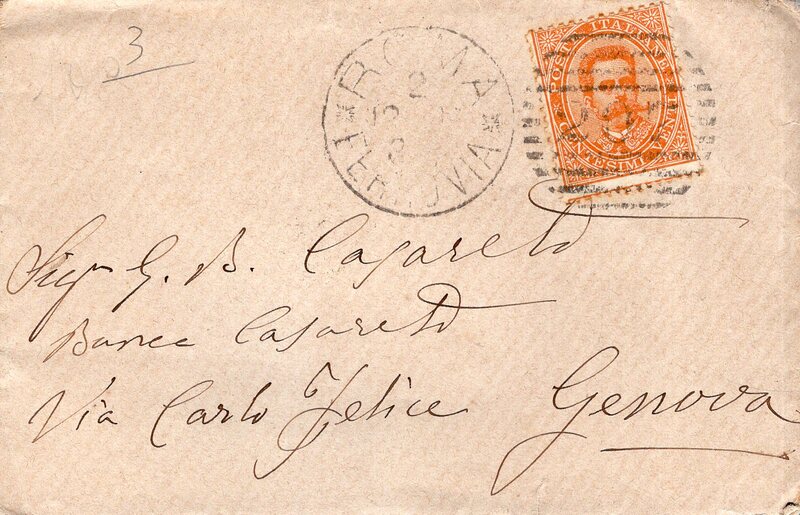 3
ROMA
FERROVIA
POSTE ITALIANE
CENTESIMI VENTI
Sigr G. B. Casareto
Banca Casareto
Via Carlo Felice Genova